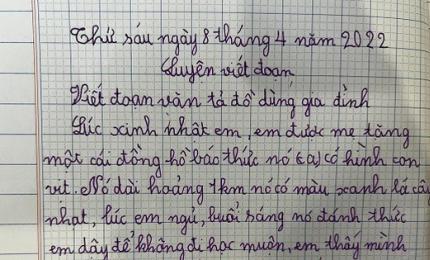 Thứ sáu ngày 8 tháng 4 năm 2022
Luyện viết đoạn
Viết đoạn văn tả đồ dùng gia đình
Lúc xinh nhật em, em được mẹ tặng
một cái đồng hồ báo thức nó có hình con
vịt. Nó dài hoảng 7km nó có màu xanh lá cây
nhạt, lúc em ngủ, buổi sáng nó đánh thức
em dậy để không đi học muộn, em thấy mình